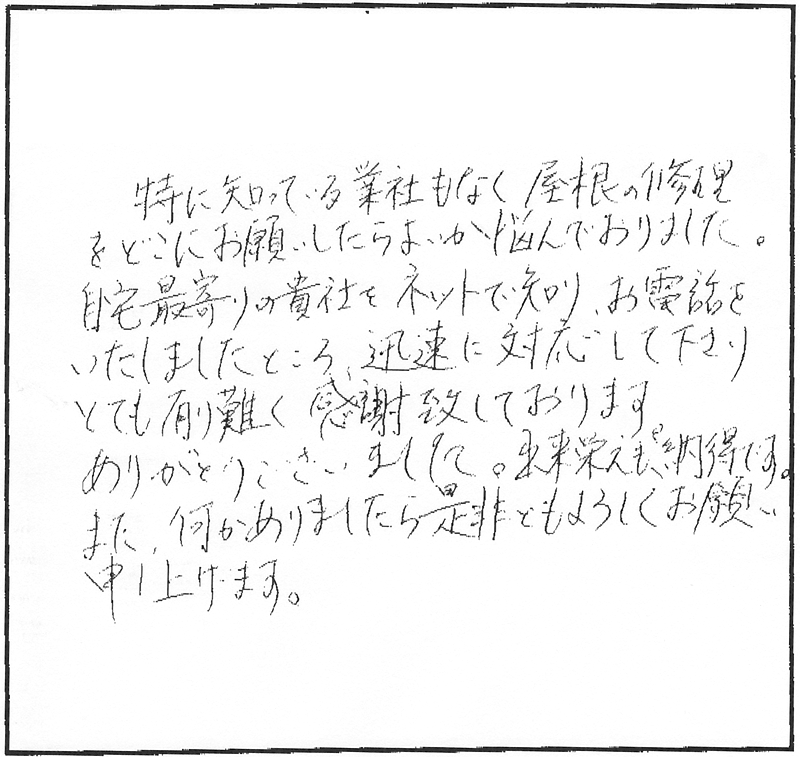 特に知っている業社もなく屋根の修理
をどこにお願いしたらよいか悩んでおりました。
自宅最寄りの貴社をネットで知り、お電話を
いたしましたところ、迅速に対応して下さり
とても有り難く感謝致しております
ありがとうございました。出来栄えも、納得です。
また、何かありましたら是非ともよろしくお願い
申し上げます。